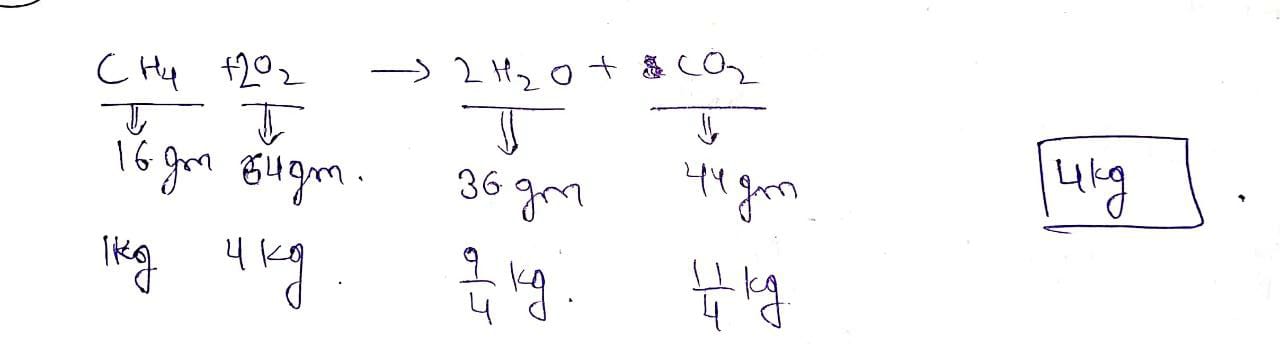 CH4 +2O2 → 2H2O + CO2
16 gm 64gm. 36 gm 44 gm
4kg.
1kg 4 kg. 9/4 kg. 11/4 kg